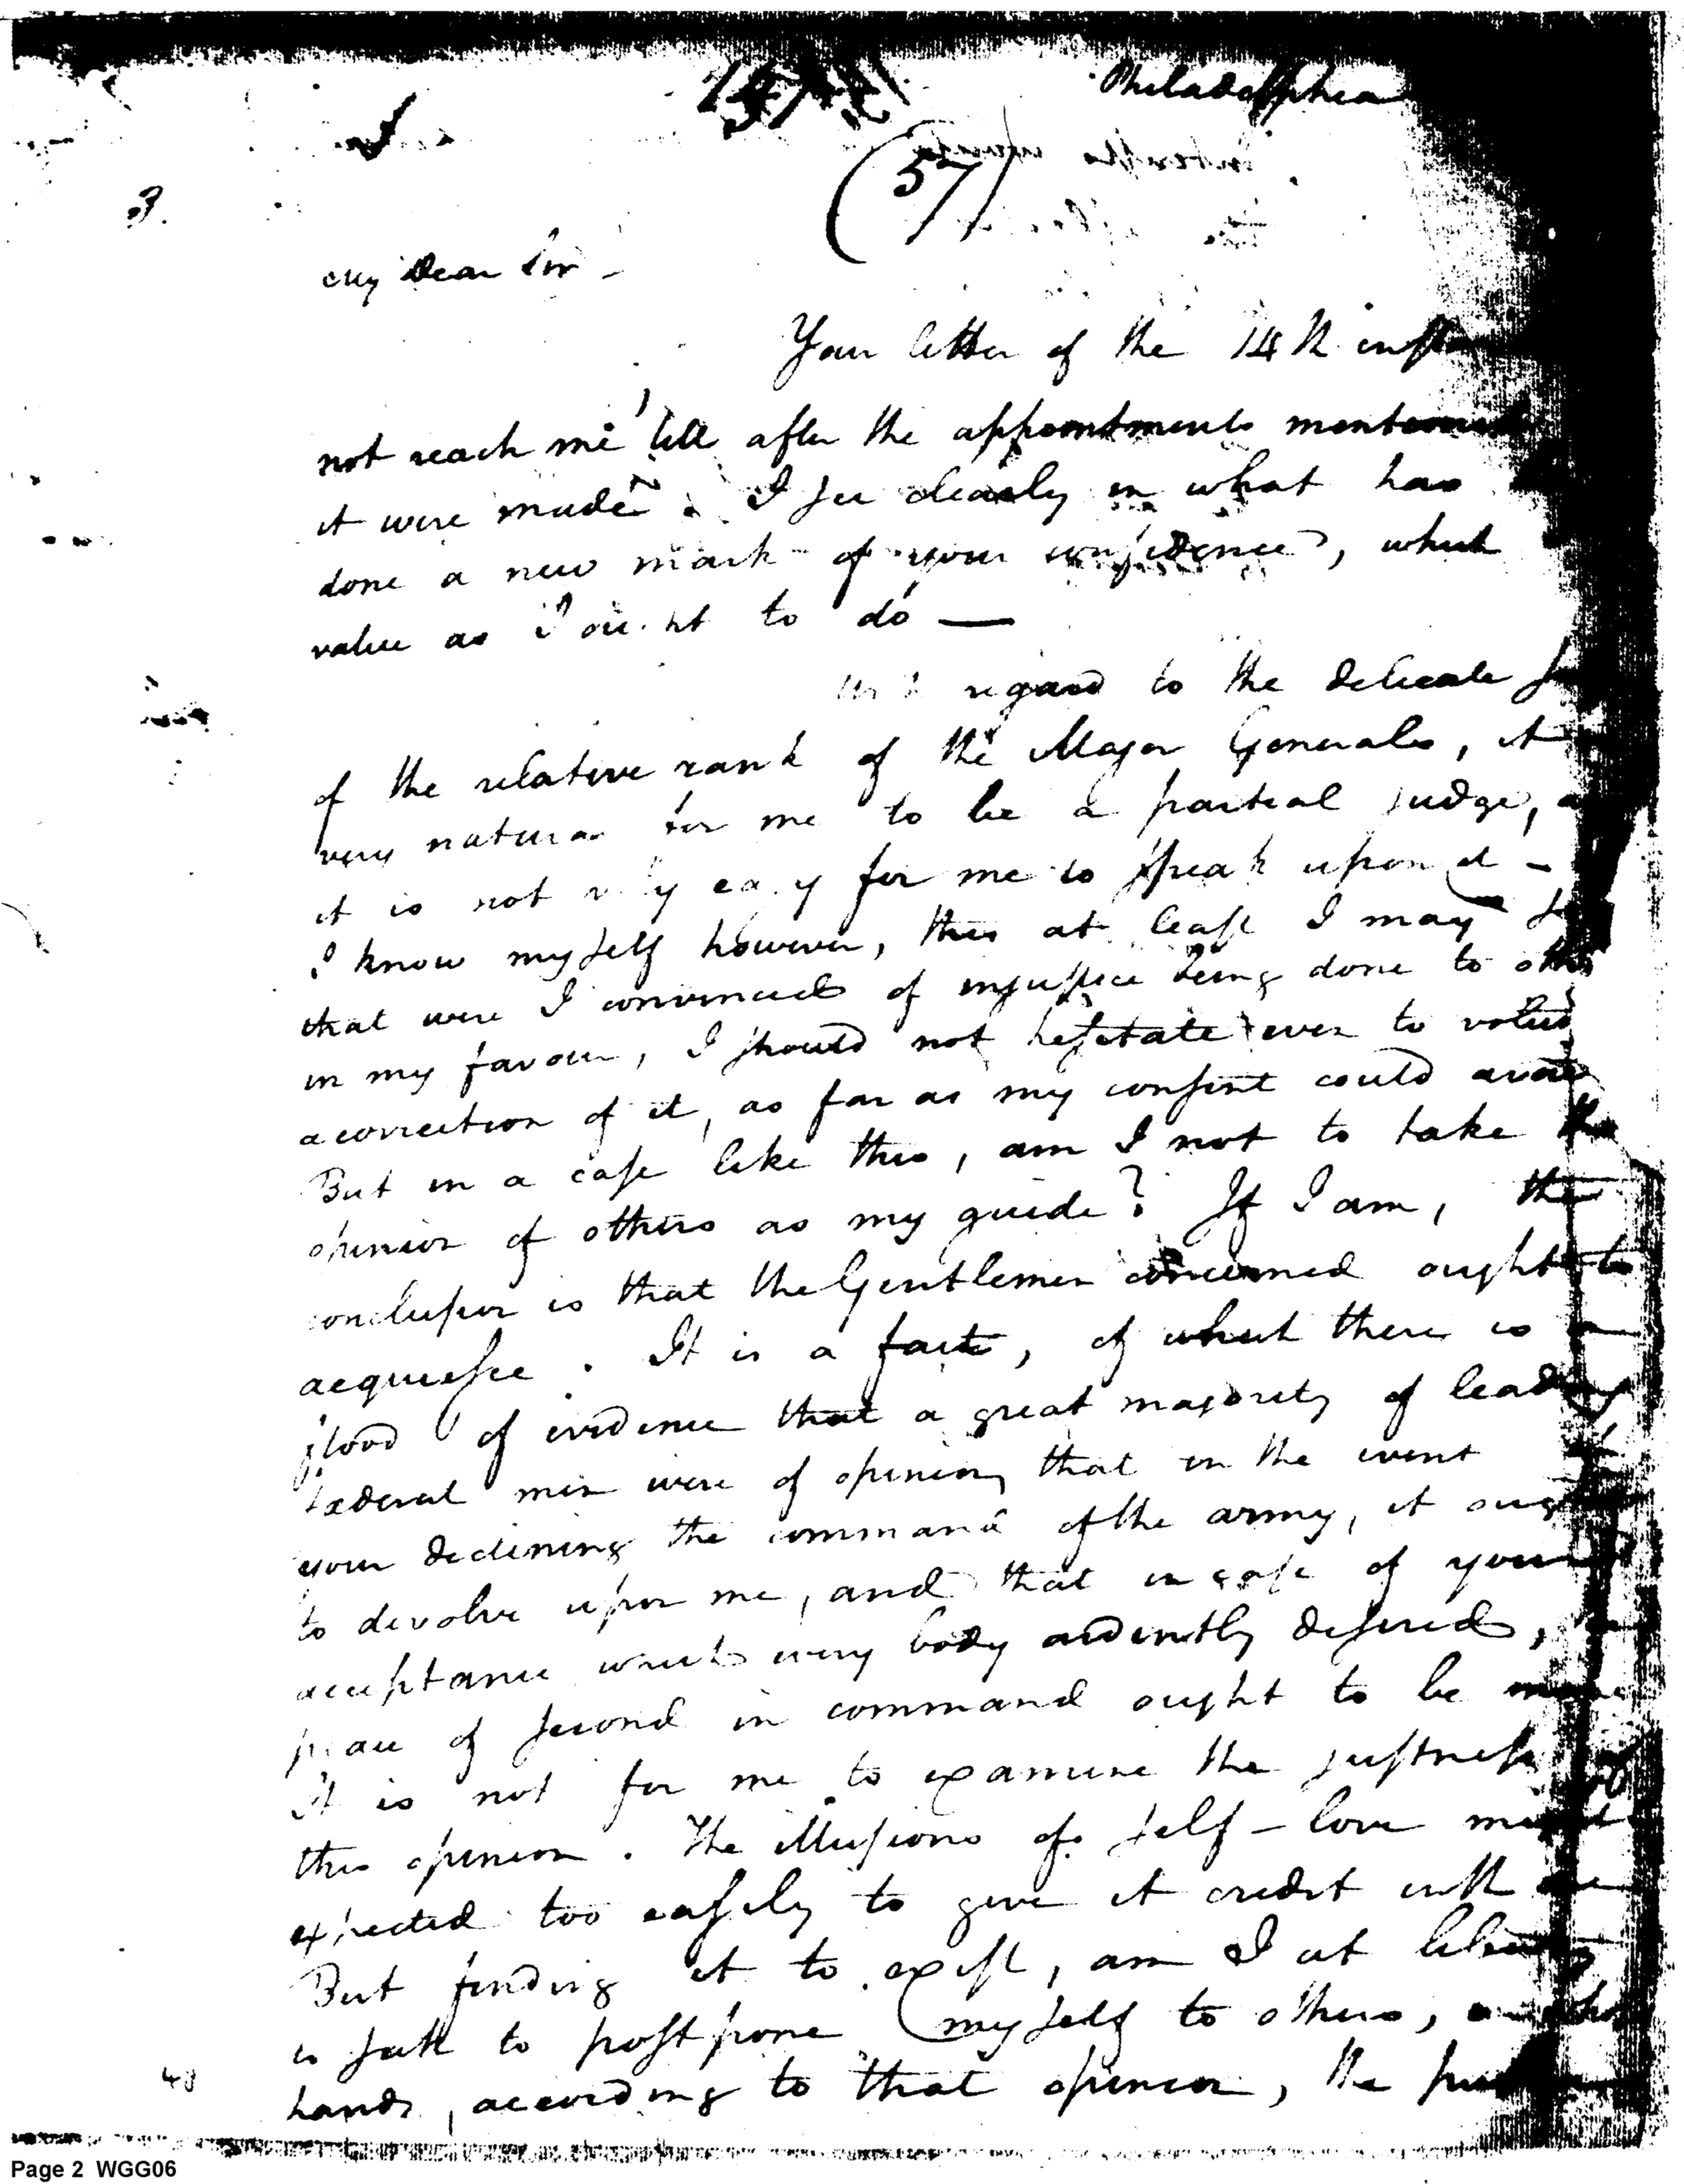 Philadelphia
(57)
3.
My Dear Sir
Your letter of the 14th inst
not reach me 'till after the appointments mentioned
it were made. I see clearly in what has
done a new mark of your confidence, which
value as I ought to do —
With regard to the delicate
of the relative rank of the Major Generals, it
very natural for me to be a partial judge,
it is not very easy for me to speak upon it —
I know myself however, this at least I may
that were I convinced of injustice being done to others
in my favour, I should not hesitate even to
a correction of it, as far as my consent could avail
But in a case like this, am I not to take the
opinion of others as my guide? If I am, the
conclusion is that the Gentlemen concerned ought to
acquiesce. It is a fact, of which there is a
flood of evidence that a great majority of leading
fœderal men were of opinion, that in the event of
your declining the command of the army, it ought
to devolve upon me, and that in case of your
acceptance which every body ardently desired,
place of second in command ought to be mine
It is not for me to examine the justness of
this opinion. The illusions of self-love might
expected too easily to give it credit with me
But finding it to exist, am I at liberty
to postpone myself to others, in whose
hands, according to that opinion, the
40
Page 2 WGG06